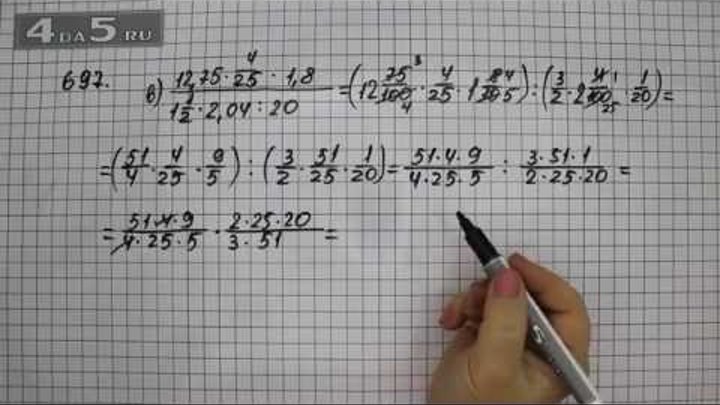 4 ДА 5 .RU
697. в) (12,75 · 4/25 · 1,8) / (1 1/2 · 2,04 : 20) = (12 75/100 · 4/25 · 1 8/10) : (3/2 · 2 4/100 · 1/20) =
= (51/4 · 4/25 · 9/5) : (3/2 · 51/25 · 1/20) = (51·4·9)/(4·25·5) : (3·51·1)/(2·25·20) =
= (51·4·9)/(4·25·5) · (2·25·20)/(3·51) =